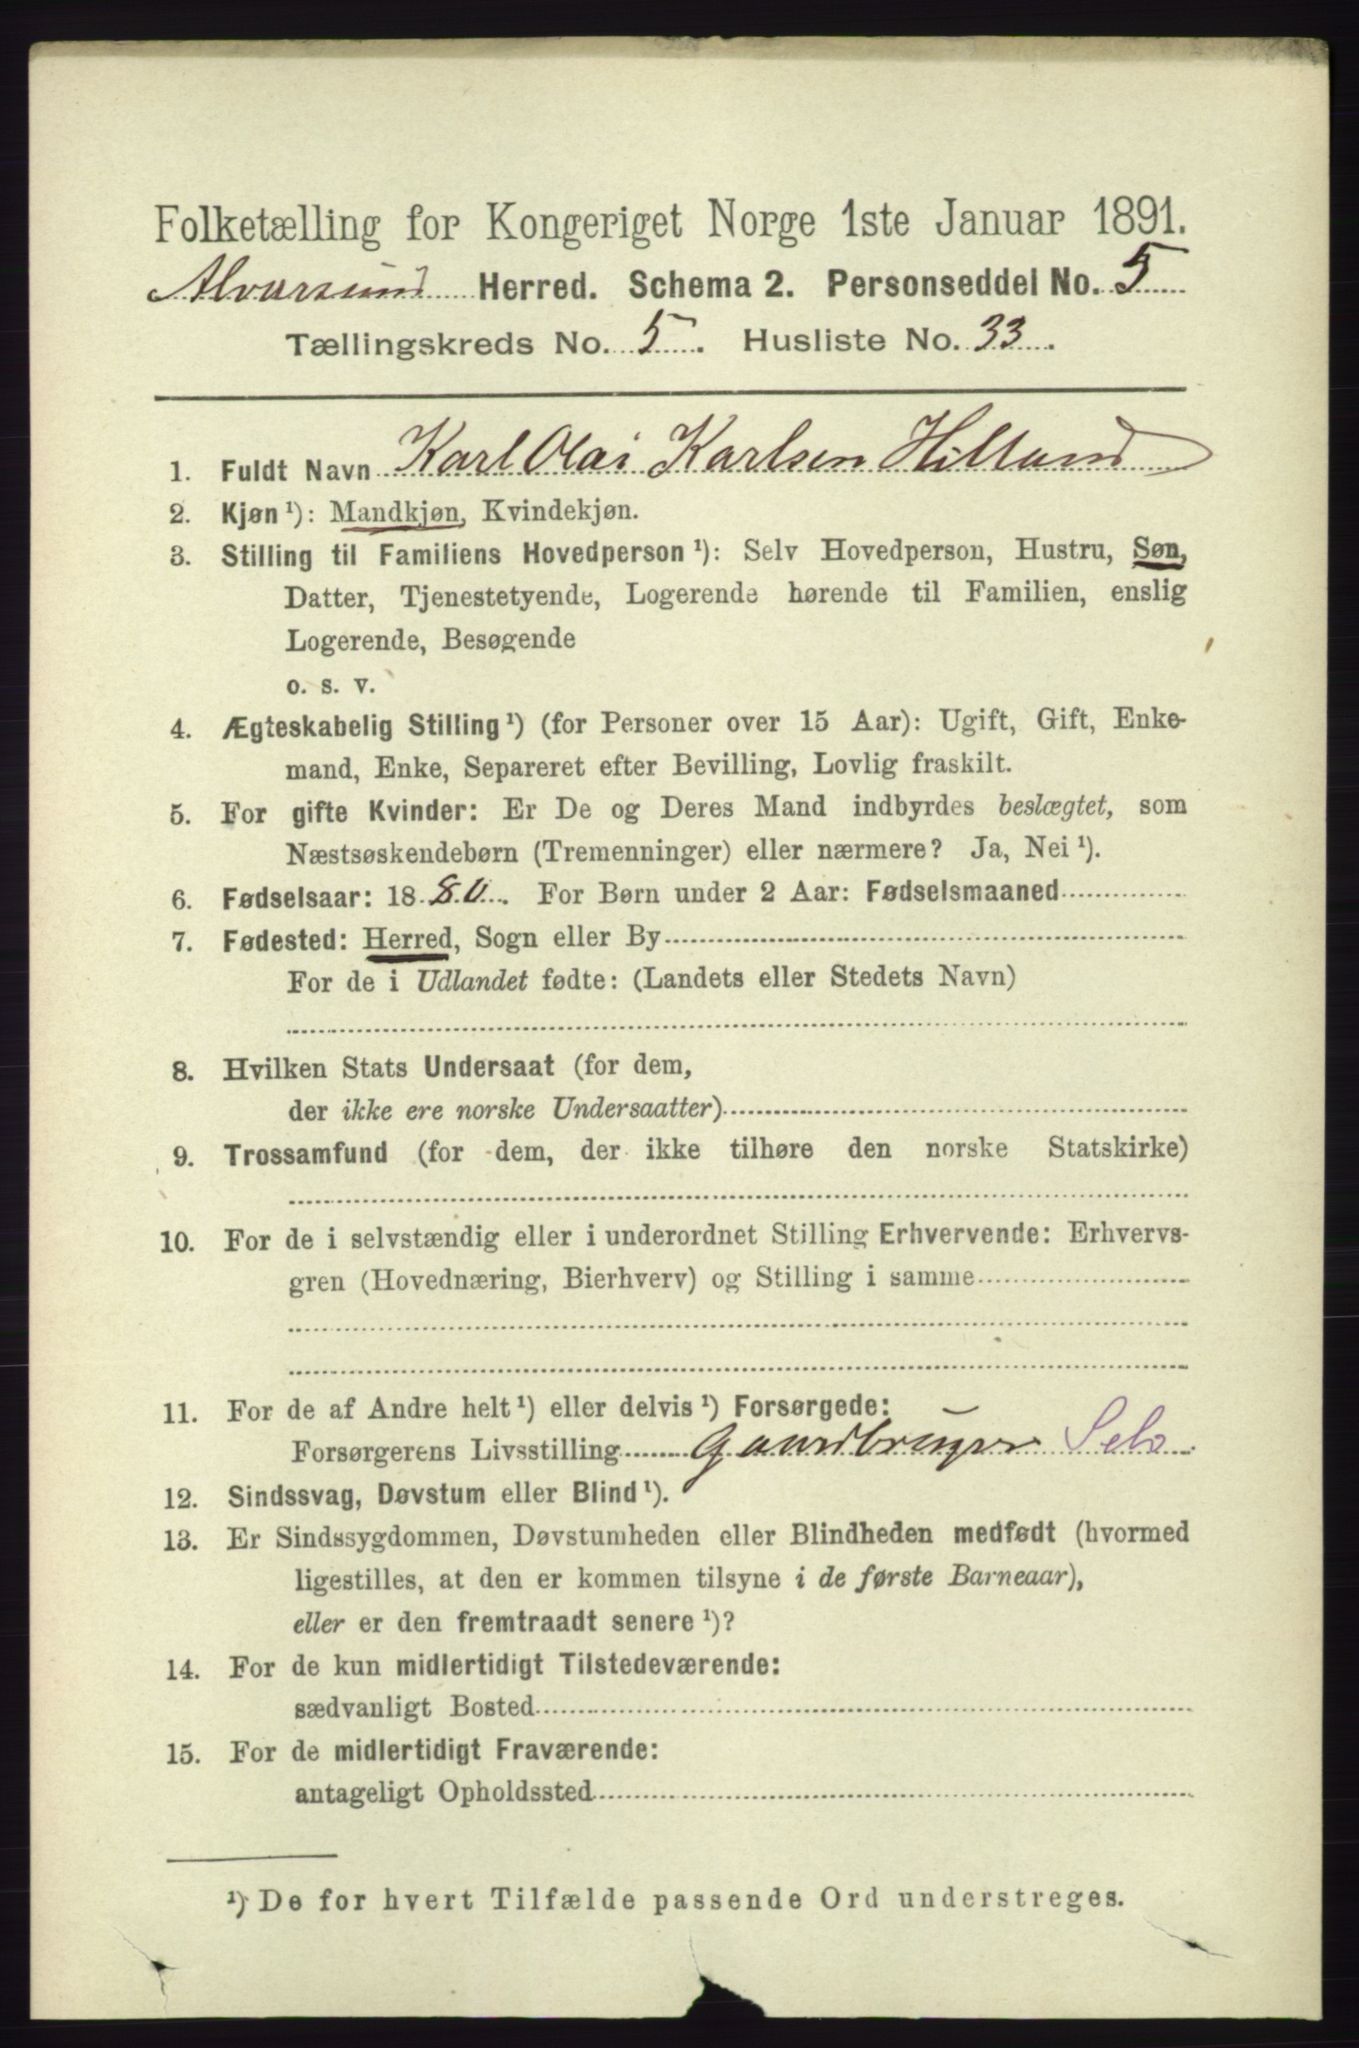 Folketælling for Kongeriget Norge 1ste Januar 1891.
Alversund Herred. Schema 2. Personseddel No. 5
Tællingskreds No. 5. Husliste No. 33.
1. Fuldt Navn Karl Olai Karlsen Hilland
2. Kjøn ¹): Mandkjøn, Kvindekjøn.
3. Stilling til Familiens Hovedperson ¹): Selv Hovedperson, Hustru, Søn,
Datter, Tjenestetyende, Logerende hørende til Familien, enslig
Logerende, Besøgende
o. s. v.
4. Ægteskabelig Stilling ¹) (for Personer over 15 Aar): Ugift, Gift, Enke-
mand, Enke, Separeret efter Bevilling, Lovlig fraskilt.
5. For gifte Kvinder: Er De og Deres Mand indbyrdes beslægtet, som
Næstsøskendebørn (Tremenninger) eller nærmere? Ja, Nei ¹).
6. Fødselsaar: 1880. For Børn under 2 Aar: Fødselsmaaned
7. Fødested: Herred, Sogn eller By
For de i Udlandet fødte: (Landets eller Stedets Navn)
8. Hvilken Stats Undersaat (for dem,
der ikke ere norske Undersaatter)
9. Trossamfund (for dem, der ikke tilhøre den norske Statskirke)
10. For de i selvstændig eller i underordnet Stilling Erhvervende: Erhvervs-
gren (Hovednæring, Bierhverv) og Stilling i samme
11. For de af Andre helt ¹) eller delvis ¹) Forsørgede:
Forsørgerens Livsstilling Gaardbruger Selv
12. Sindssvag, Døvstum eller Blind ¹).
13. Er Sindssygdommen, Døvstumheden eller Blindheden medfødt (hvormed
ligestilles, at den er kommen tilsyne i de første Barneaar),
eller er den fremtraadt senere ¹)?
14. For de kun midlertidigt Tilstedeværende:
sædvanligt Bosted
15. For de midlertidigt Fraværende:
antageligt Opholdssted
¹) De for hvert Tilfælde passende Ord understreges.